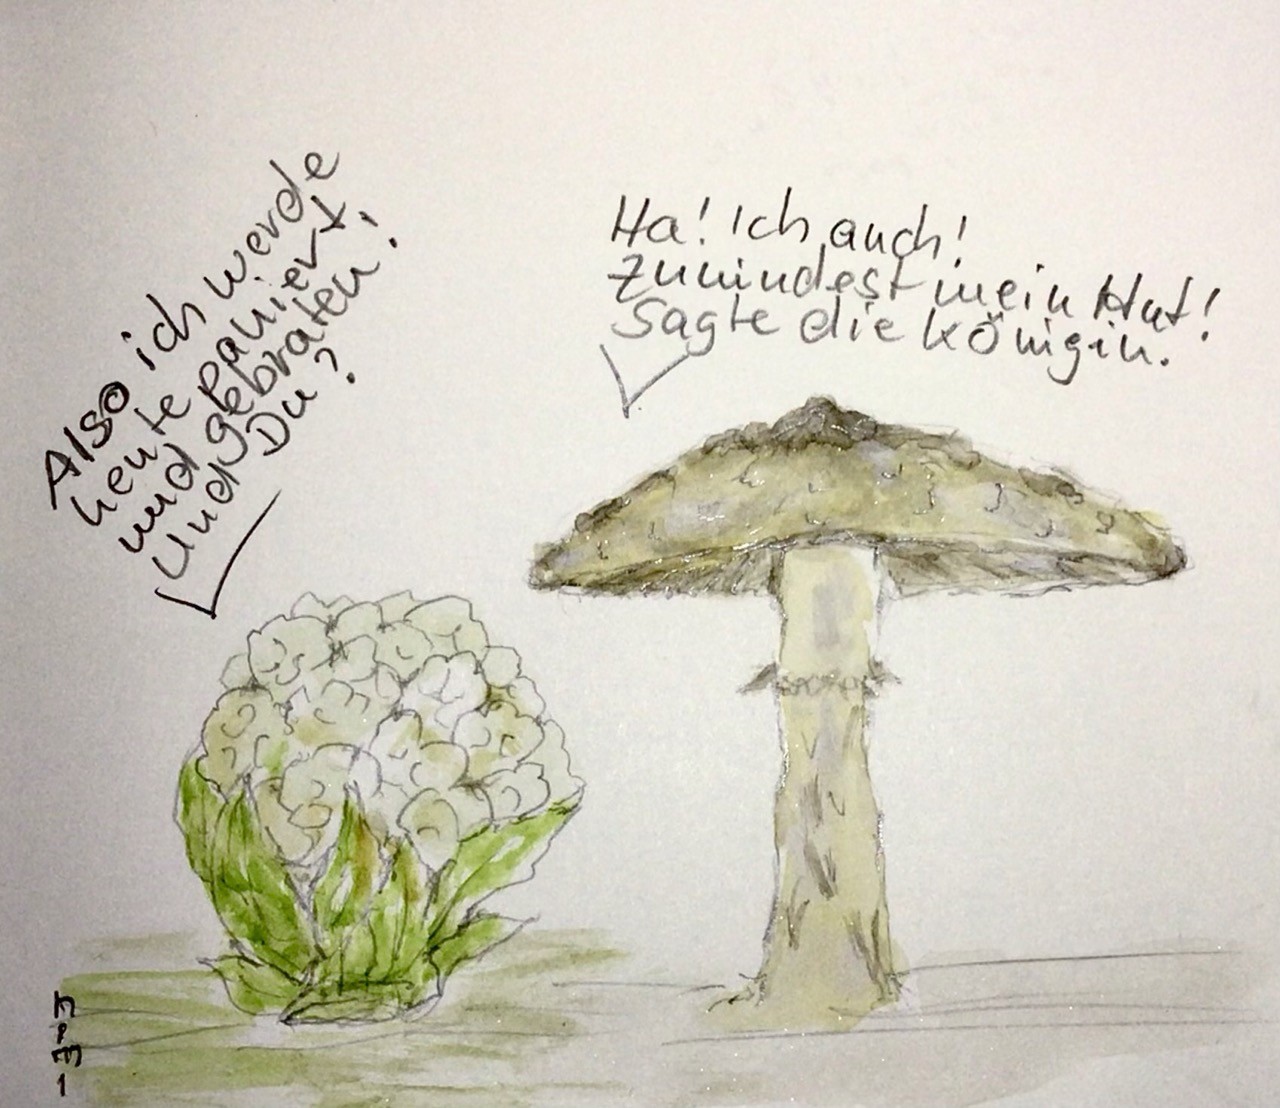 Also ich werde
heute paniert
und gebraten!
Und Du?
Ha! Ich auch!
Zumindest mein Hut!
Sagte die Königin.